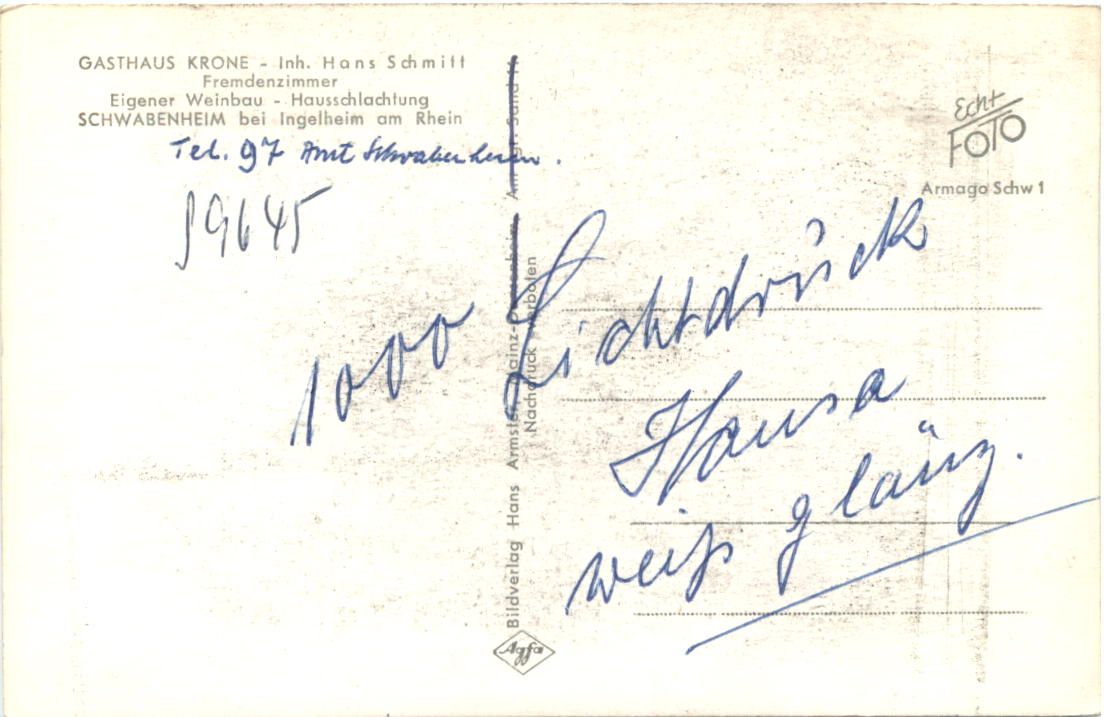 GASTHAUS KRONE - Inh. Hans Schmitt
Fremdenzimmer
Eigener Weinbau - Hausschlachtung
SCHWABENHEIM bei Ingelheim am Rhein
Tel. 97 Amt Schwabenheim.
S 9645
Echt
FOTO
Armago Schw 1
1000 Lichtdruck
Hansa
weiß glänz.
Bildverlag Hans
Nachdruck verboten
Agfa